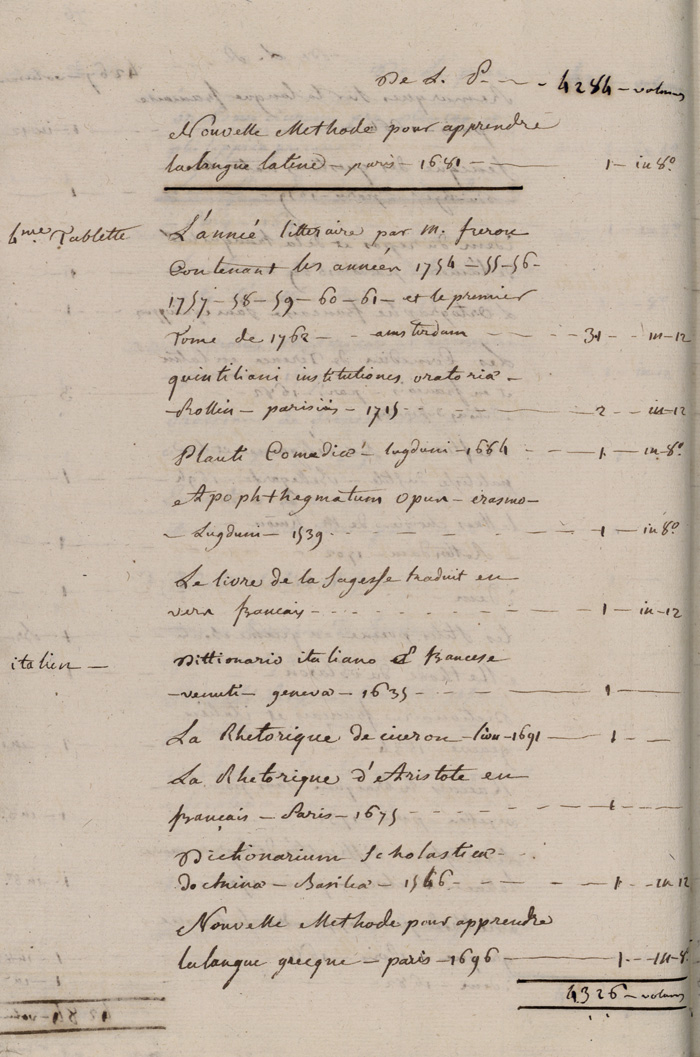 De L. P. - - - 4284 - volumes
Nouvelle Methode pour apprendre
la langue latine - paris - 1681 - 1 - in 8º
4me Tablette L'année litteraire par m. freron
Contenant les années 1754 - 55 - 56 -
1757 - 58 - 59 - 60 - 61 - et le premier
Tome de 1762 - amsterdam - 31 - in-12
quintiliani institutiones oratoriæ -
Rollin - parisiis - 1715 - 2 - in-12
Plauti Comediæ - lugduni - 1684 - 1 - in-8º
Apophthegmatum Opus - erasmo -
- Lugduni - 1539 - 1 - in 8º
Le livre de la Sagesse traduit en
vers français - 1 - in-12
italien - Dittionario italiano & francese
- venuti - geneva - 1635 - 1 -
La Rhetorique de ciceron - lion - 1691 - 1 -
La Rhetorique d'Aristote en
français - Paris - 1675 - 1 -
Dictionarium Scholasticæ
doctrinæ - Basileæ - 1546 - 1 - in 12
Nouvelle Methode pour apprendre
la langue grecque - paris - 1696 - 1 - in-8º
4326 - volumes